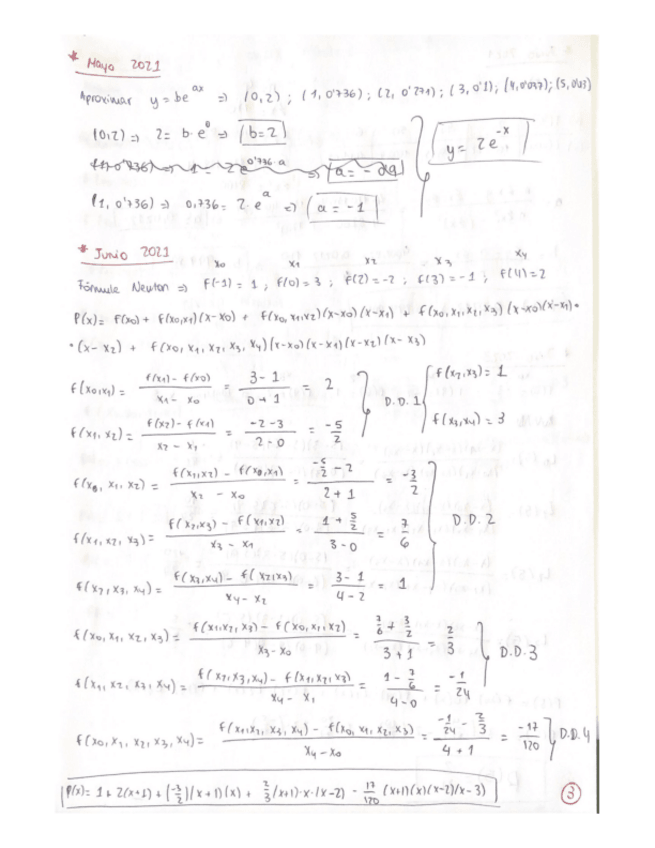 * Mayo 2021
Aproximar y = be^{ax} => (0,2) ; (1, 0'736) ; (2, 0'271) ; (3, 0'1) ; (4, 0'037) ; (5, 0'013)
(0,2) => 2 = b·e^0 => b=2
y = 2e^{-x}
(1, 0'736) => 0,736 = 2·e^a => a = -1
* Junio 2021
x0 x1 x2 x3 x4
Fórmula Newton => f(-1) = 1 ; f(0) = 3 ; f(2) = -2 ; f(3) = -1 ; f(4) = 2
P(x) = f(x0) + f(x0,x1)(x-x0) + f(x0,x1,x2)(x-x0)(x-x1) + f(x0,x1,x2,x3)(x-x0)(x-x1)·
·(x-x2) + f(x0,x1,x2,x3,x4)(x-x0)(x-x1)(x-x2)(x-x3)
f(x0,x1) = f(x1) - f(x0) / x1 - x0 = 3-1 / 0+1 = 2
D.D.1
f(x2,x3) = 1
f(x3,x4) = 3
f(x1,x2) = f(x2) - f(x1) / x2 - x1 = -2-3 / 2-0 = -5/2
f(x0,x1,x2) = f(x1,x2) - f(x0,x1) / x2 - x0 = -5/2 - 2 / 2+1 = -3/2
f(x1,x2,x3) = f(x2,x3) - f(x1,x2) / x3 - x1 = 1 + 5/2 / 3-0 = 7/6
D.D.2
f(x2,x3,x4) = f(x3,x4) - f(x2,x3) / x4 - x2 = 3-1 / 4-2 = 1
f(x0,x1,x2,x3) = f(x1,x2,x3) - f(x0,x1,x2) / x3 - x0 = 7/6 + 3/2 / 3+1 = 2/3
D.D.3
f(x1,x2,x3,x4) = f(x2,x3,x4) - f(x1,x2,x3) / x4 - x1 = 1 - 7/6 / 4-0 = -1/24
f(x0,x1,x2,x3,x4) = f(x1,x2,x3,x4) - f(x0,x1,x2,x3) / x4 - x0 = -1/24 - 2/3 / 4+1 = -17/120
D.D.4
P(x) = 1 + 2(x+1) + (-3/2)(x+1)(x) + 2/3 (x+1)·x·(x-2) - 17/120 (x+1)(x)(x-2)(x-3)
3